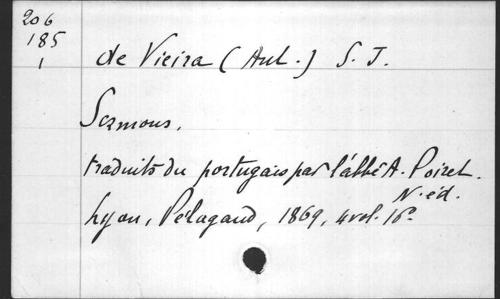 206
185
1
de Vieira (Ant.) S. J.
Sermons.
traduits du portugais par l'abbé A. Poiret.
N. éd.
Lyon, Pélagaud, 1869, 4 vol. 16°